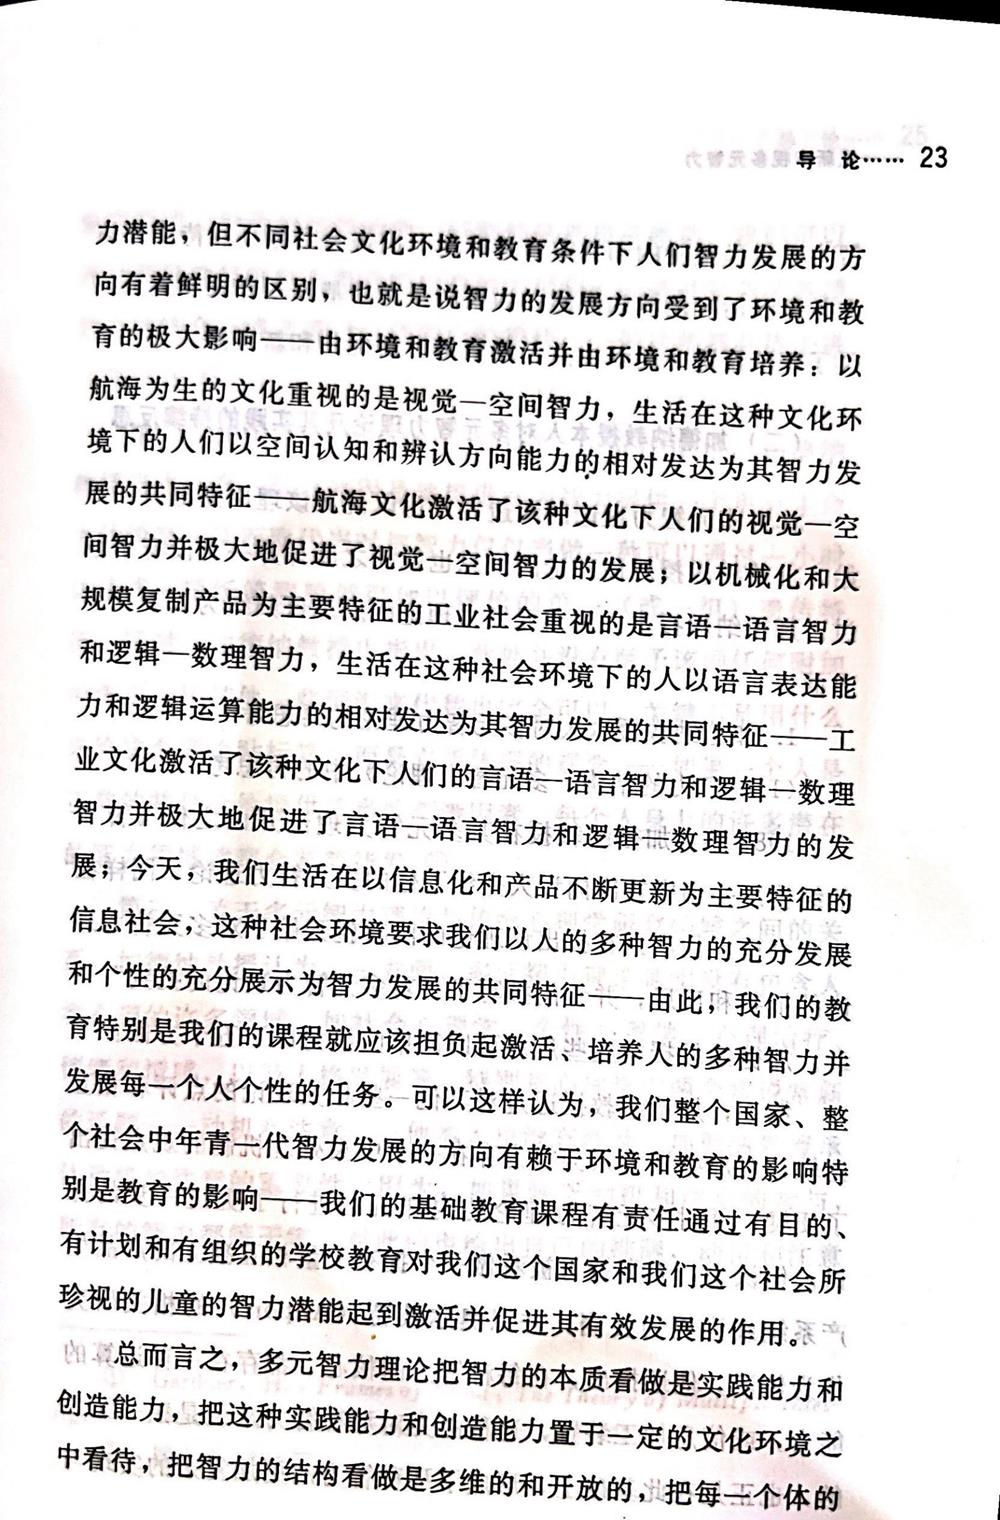 导 论…… 23
力潜能，但不同社会文化环境和教育条件下人们智力发展的方
向有着鲜明的区别，也就是说智力的发展方向受到了环境和教
育的极大影响——由环境和教育激活并由环境和教育培养：以
航海为生的文化重视的是视觉—空间智力，生活在这种文化环
境下的人们以空间认知和辨认方向能力的相对发达为其智力发
展的共同特征——航海文化激活了该种文化下人们的视觉—空
间智力并极大地促进了视觉—空间智力的发展；以机械化和大
规模复制产品为主要特征的工业社会重视的是言语—语言智力
和逻辑—数理智力，生活在这种社会环境下的人以语言表达能
力和逻辑运算能力的相对发达为其智力发展的共同特征——工
业文化激活了该种文化下人们的言语—语言智力和逻辑—数理
智力并极大地促进了言语—语言智力和逻辑—数理智力的发
展；今天，我们生活在以信息化和产品不断更新为主要特征的
信息社会，这种社会环境要求我们以人的多种智力的充分发展
和个性的充分展示为智力发展的共同特征——由此，我们的教
育特别是我们的课程就应该担负起激活、培养人的多种智力并
发展每一个人个性的任务。可以这样认为，我们整个国家、整
个社会中年青一代智力发展的方向有赖于环境和教育的影响特
别是教育的影响——我们的基础教育课程有责任通过有目的、
有计划和有组织的学校教育对我们这个国家和我们这个社会所
珍视的儿童的智力潜能起到激活并促进其有效发展的作用。
总而言之，多元智力理论把智力的本质看做是实践能力和
创造能力，把这种实践能力和创造能力置于一定的文化环境之
中看待，把智力的结构看做是多维的和开放的，把每一个体的